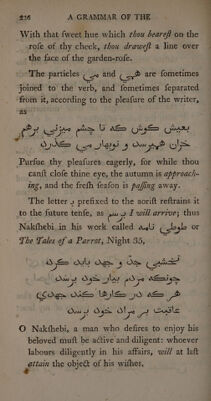 226 A GRAMMAR OF THE
With that sweet hue which thou bearest on the
rose of thy cheek, thou drawest a line over
the face of the garden-rose.
The particles می and همی are sometimes
joined to the verb, and sometimes separated
from it, according to the pleasure of the writer,
as
بعیش کوش که تا چشم میزنی برهم
خزان همیرسد و نوبهار می گذرد
Pursue thy pleasures eagerly, for while thou
canst close thine eye, the autumn is approach-
ing, and the fresh season is passing away.
The letter ب prefixed to the aorist restrains it
to the future tense, as برسم I will arrive; thus
Nakshebi in his work called طوطی نامه or
The Tales of a Parrot, Night 35,
نخشبی جد و جهد باید کرد
چونکه مردم بیار خود برسد
هر که در کارها کند جهدی
عاقبت بر مراد خود برسد
O Nakshebi, a man who desires to enjoy his
beloved must be active and diligent: whoever
labours diligently in his affairs, will at last
attain the object of his wishes.